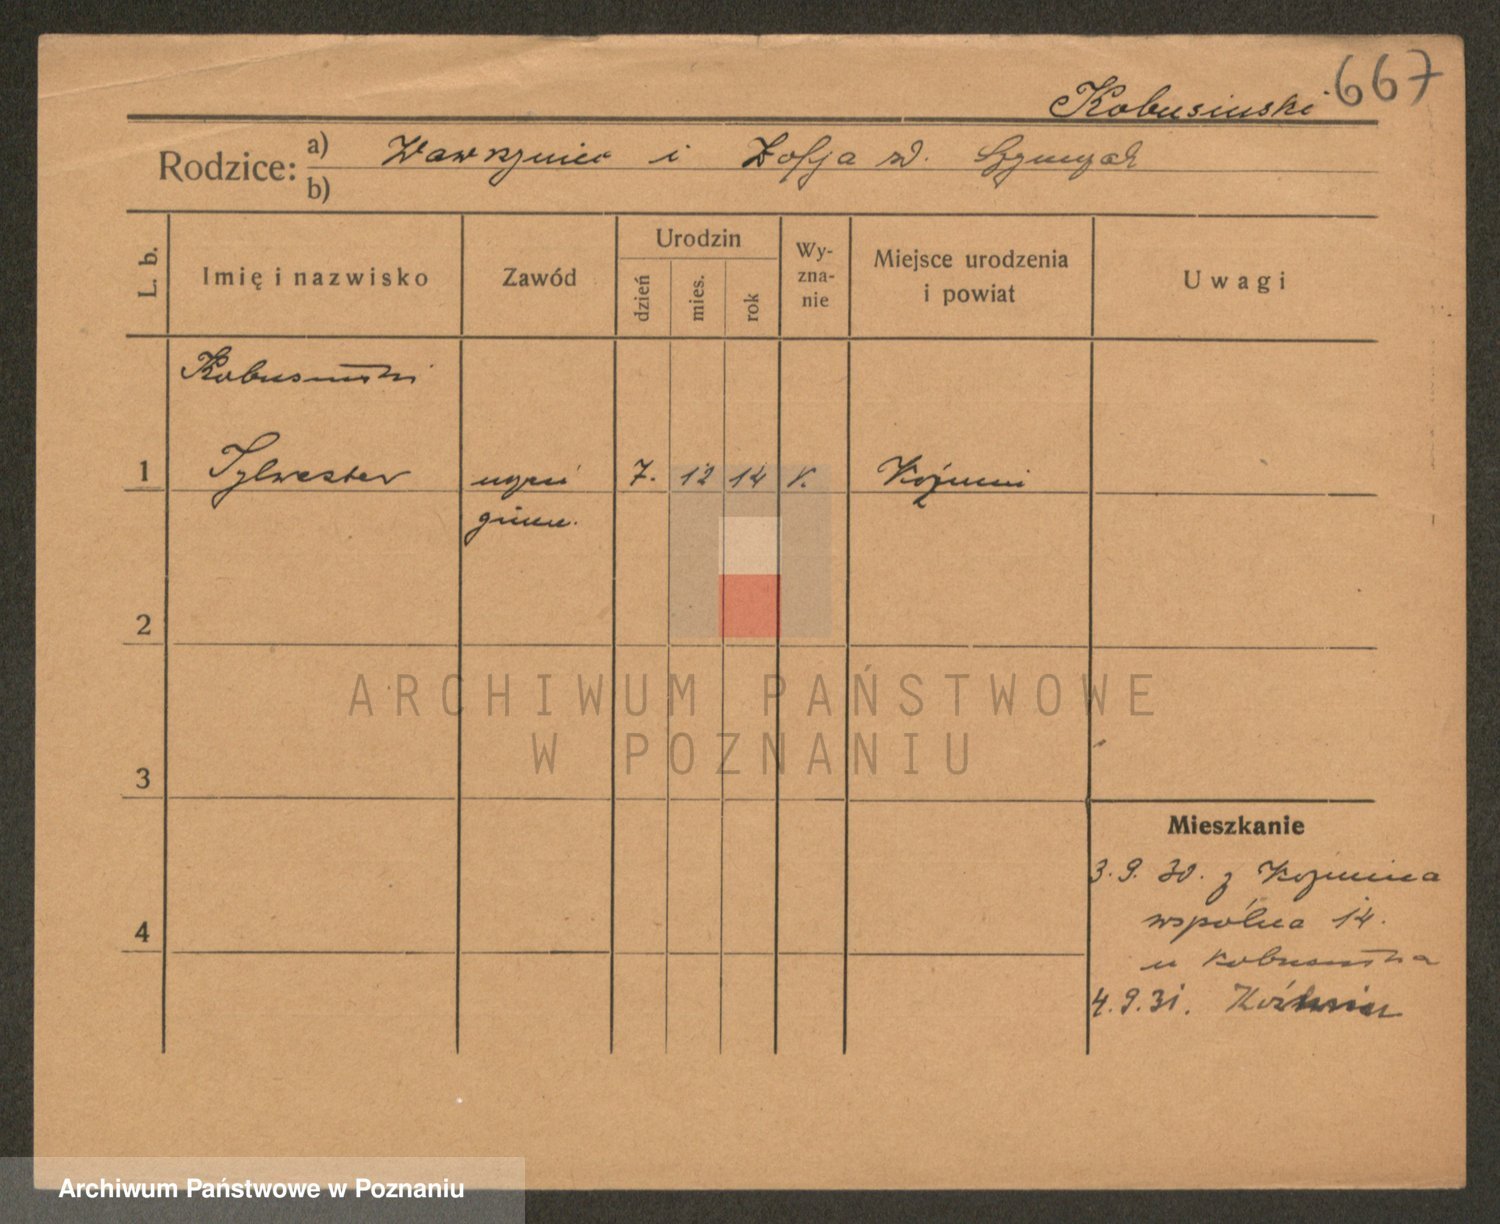 667
Kobusiński
Rodzice: a) Wawrzyniec i Zofja zd. Szymczak
b)
L. b. Imię i nazwisko Zawód Urodzin dzień mies. rok Wy-zna-nie Miejsce urodzenia i powiat Uwagi
Kobusiński
1 Sylwester uczeń 7. 12 14 k. Koźmin
gimn.
2
ARCHIWUM PAŃSTWOWE
W POZNANIU
3
Mieszkanie
3.9.30. z Koźmina
wspólna 14.
4
u Kobusińska
4.9.31. Koźmin
Archiwum Państwowe w Poznaniu